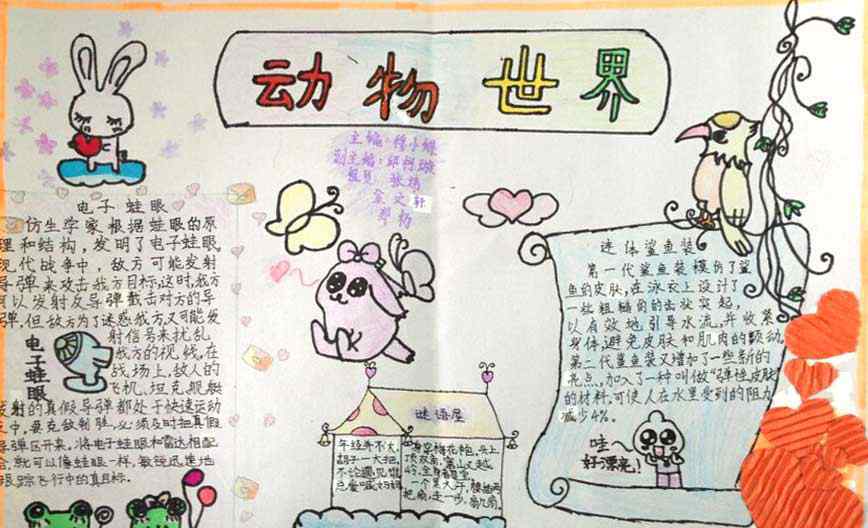 动物世界
主编:
副主编:
电子蛙眼
仿生学家根据蛙眼的原
理和结构,发明了电子蛙眼,
现代战争中,敌方可能发射
导弹来攻击我方目标,这时,我方
可以发射反导弹截击对方的导
弹,但敌方为了迷惑我方,又可能发
射信号来扰乱
我方的视线,在
战场上,敌人的
飞机、坦克、舰艇
发射的真假导弹都处于快速运动
之中,要克敌制胜,必须及时把真假
导弹区开来,将电子蛙眼和雷达相配
合,就可以像蛙眼一样,敏锐迅速地
跟踪飞行中的真目标。
电子蛙眼
谜语屋
年纪并不大,
胡子一大把,
不论遇见谁,
总爱喊妈妈
身穿梅花袍,头上
一个黑大汉,腰插两
把扇,走一步,扇几扇。
连体鲨鱼装
第一代鲨鱼装模仿了鲨
鱼的皮肤,在泳衣上设计了
一些粗糙的齿状突起,
以有效地引导水流,并收紧
身体,避免皮肤和肌肉的颤动,
第二代鲨鱼装又增加了一些新的
亮点,加入了一种叫做“弹性皮肤”
的材料,可使人在水里受到的阻力
减少4%。
哇~
好漂亮!